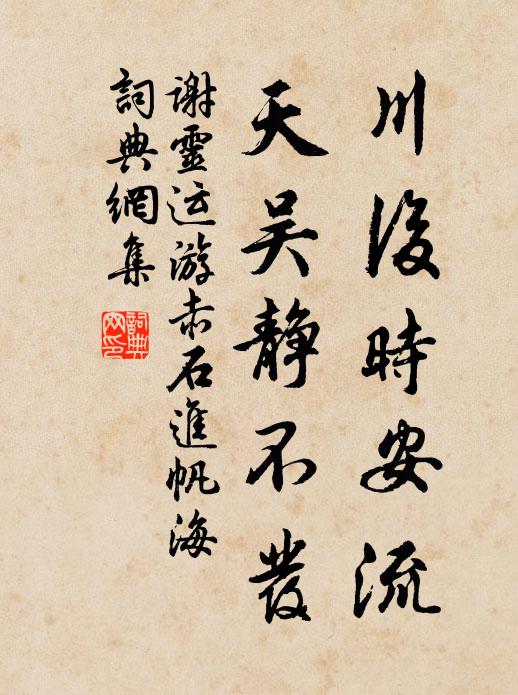 川後時安流
天吴静不發
謝靈运游赤石進帆海
詞典網集
詞典
网印